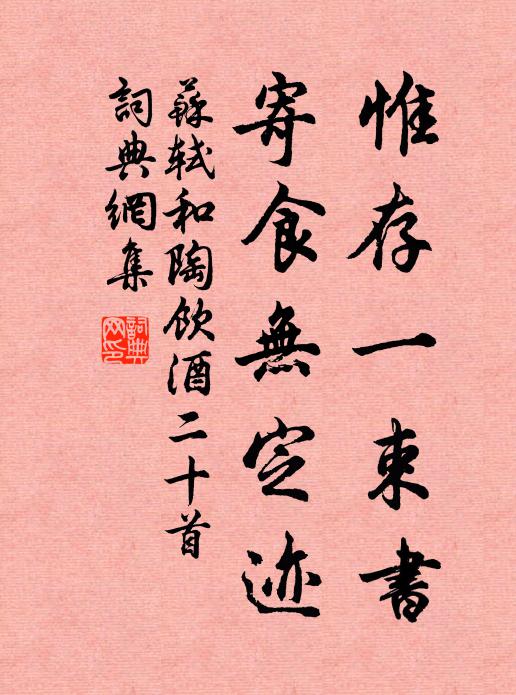 惟存一束書
寄食無定迹
蘇軾和陶飲酒二十首
詞典網集
詞典網印